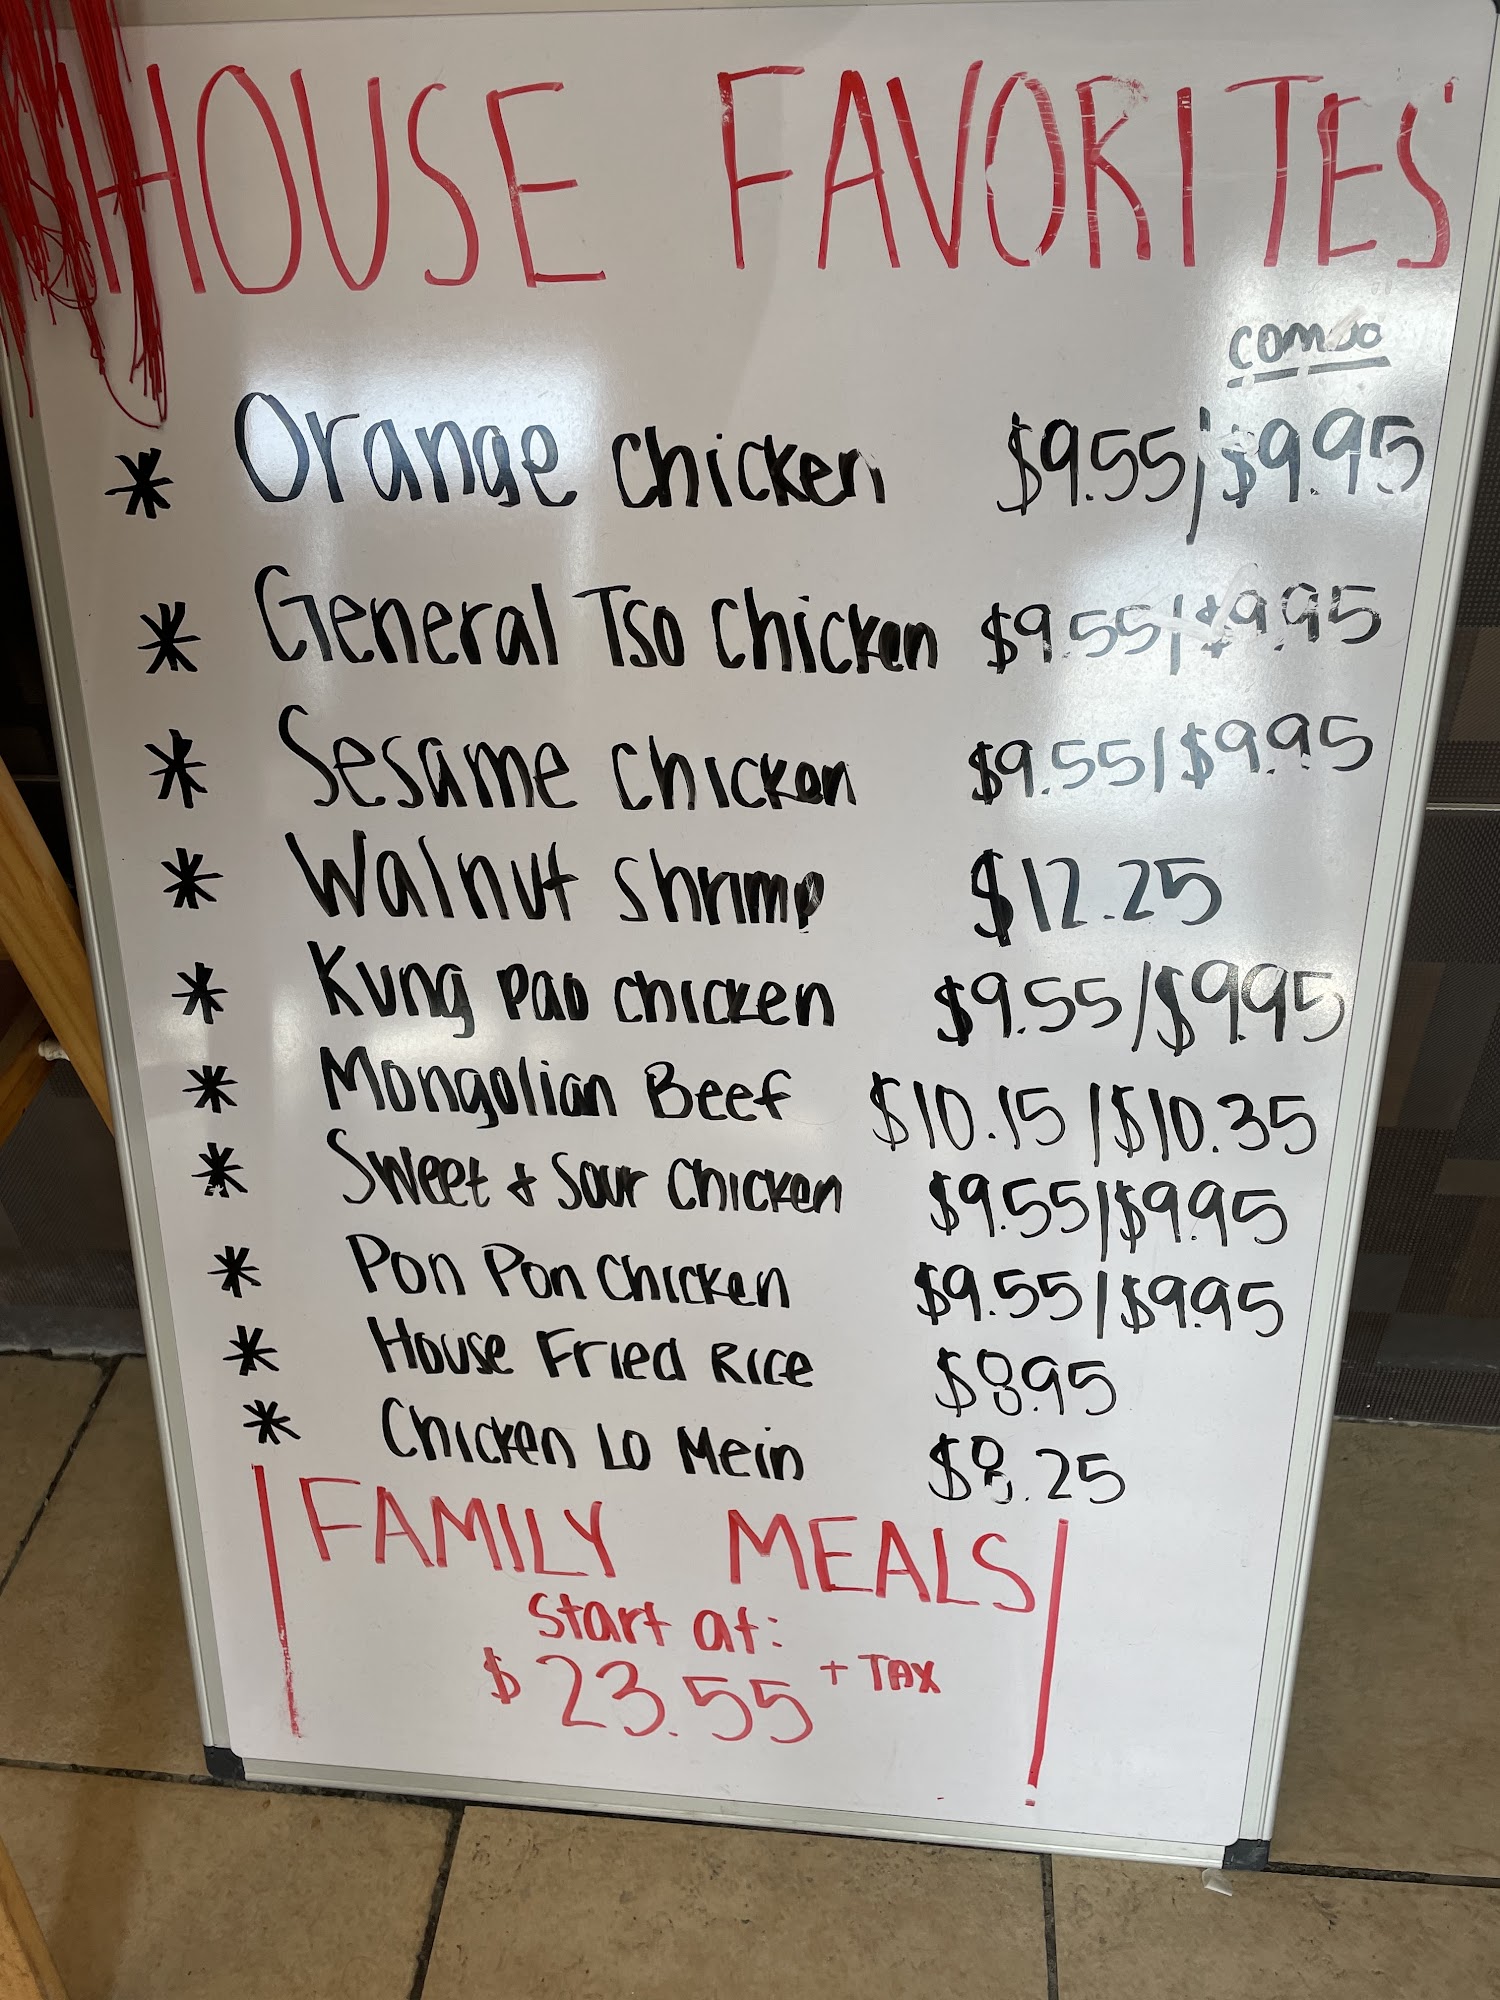 HOUSE FAVORITES
combo
* Orange Chicken $9.55/$9.95
* General Tso Chicken $9.55/$9.95
* Sesame Chicken $9.55/$9.95
* Walnut Shrimp $12.25
* Kung Pao Chicken $9.55/$9.95
* Mongolian Beef $10.15/$10.35
* Sweet & Sour Chicken $9.55/$9.95
* Pon Pon Chicken $9.55/$9.95
* House Fried Rice $8.95
* Chicken Lo Mein $8.25
FAMILY MEALS
Start at:
$23.55 + TAX